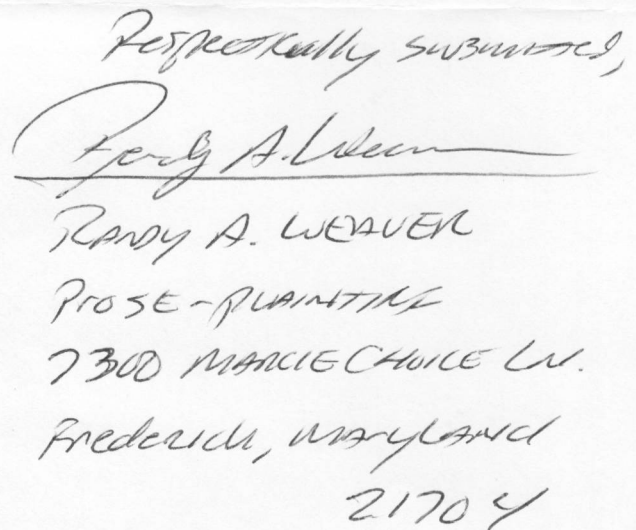 Respectfully submitted,
Randy A. Weaver
RANDY A. WEAVER
Pro SE - PLAINTIFF
7300 MARCIE CHOICE LN.
Frederick, MARYLAND
21704